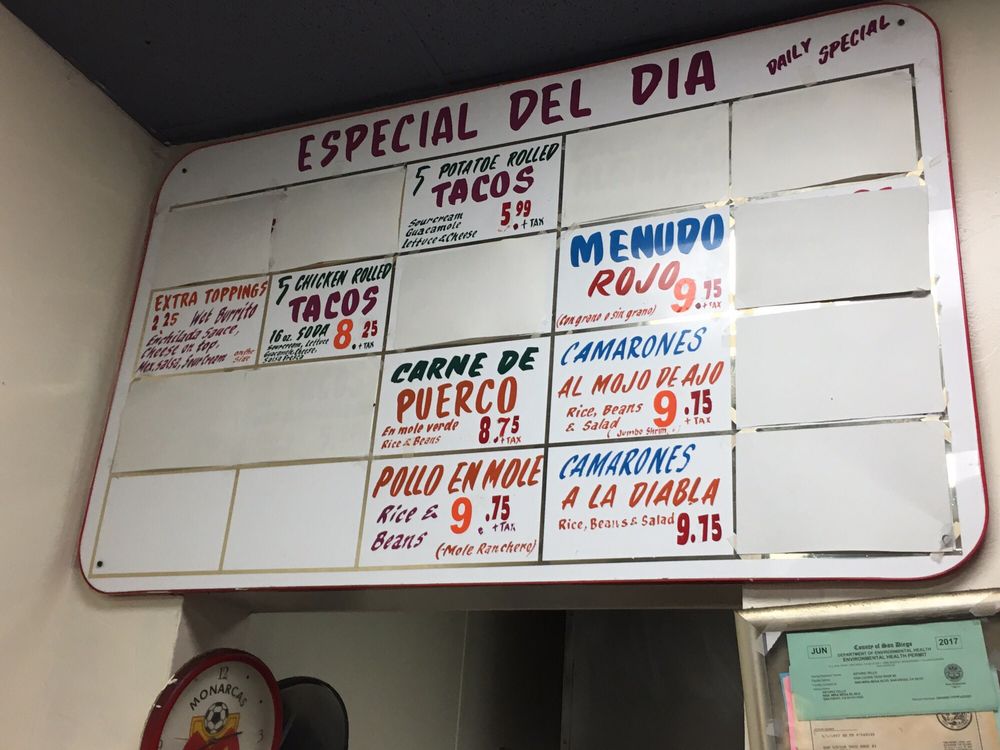 ESPECIAL DEL DIA
DAILY SPECIAL
5 POTATOE ROLLED
TACOS
Sourcream
Guacamole
Lettuce & Cheese
5.99
+ TAX
EXTRA TOPPINGS
2.25 Wet Burrito
Enchilada Sauce,
Cheese on top.
Mex, Salsa, Sourcream
on the
Side
5 CHICKEN ROLLED
TACOS
16 oz. SODA 8.25
+ TAX
Sourcream, Lettuce
Guacamole, Cheese,
Salsa Fresca
MENUDO
ROJO 9.75
+ TAX
(Con grano o sin grano)
CARNE DE
PUERCO
En mole verde
Rice & Beans
8.75
+ TAX
CAMARONES
AL MOJO DE AJO
Rice, Beans
& Salad
9.75
+ TAX
(Jumbo Shrim
POLLO EN MOLE
Rice &
Beans
9.75
+ TAX
(-Mole Ranchero)
CAMARONES
A LA DIABLA
Rice, Beans & Salad 9.75
MONARCAS
12
3
JUN
County of San Diego
2017
DEPARTMENT OF ENVIRONMENTAL HEALTH
ENVIRONMENTAL HEALTH PERMIT